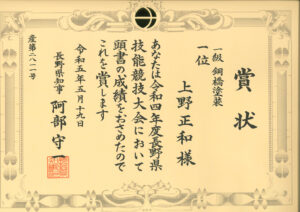 賞状
一級 鋼橋塗装
一位
上野正和様
あなたは令和四年度長野県
技能競技大会において
頭書の成績をおさめたので
これを賞します
令和五年五月十九日
長野県知事 阿部守一
産第二八一号